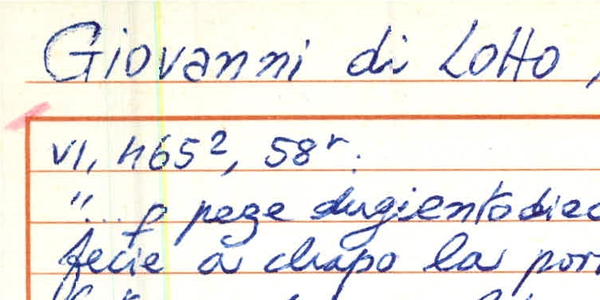 Giovanni di Lotto
VI, 465², 58ʳ.
"... p peze dugientodiec
fecie a chapo la por